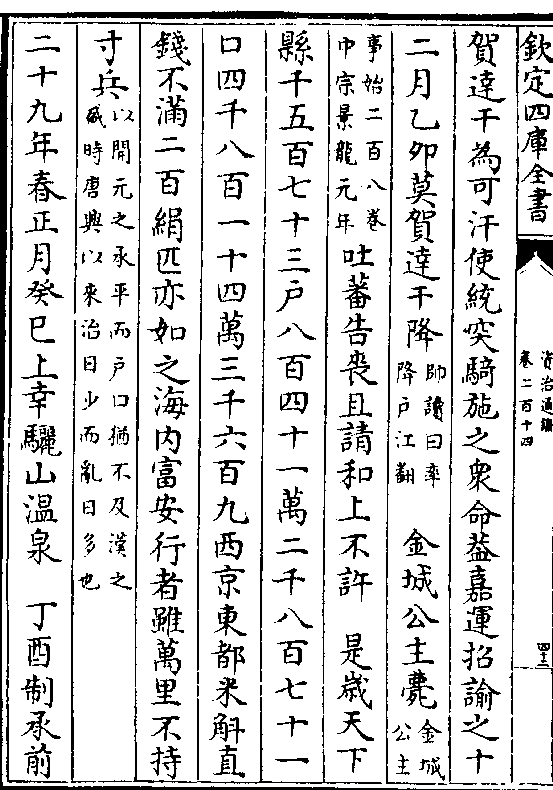 欽定四庫全書
資治通鑑
卷二百十四
四三
賀達干為可汗使統突騎施之衆命葢嘉運招諭之十
二月乙卯莫賀達干降帥讀曰率降戶江翻 金城公主薨金城公主
事始二百八卷中宗景龍元年吐蕃告喪且請和上不許 是歳天下
縣千五百七十三戶八百四十一萬二千八百七十一
口四千八百一十四萬三千六百九西京東都米斛直
錢不滿二百絹匹亦如之海内富安行者雖萬里不持
寸兵以開元之承平而戶口猶不及漢之盛時唐興以來治日少而亂日多也
二十九年春正月癸巳上幸驪山温泉 丁酉制承前